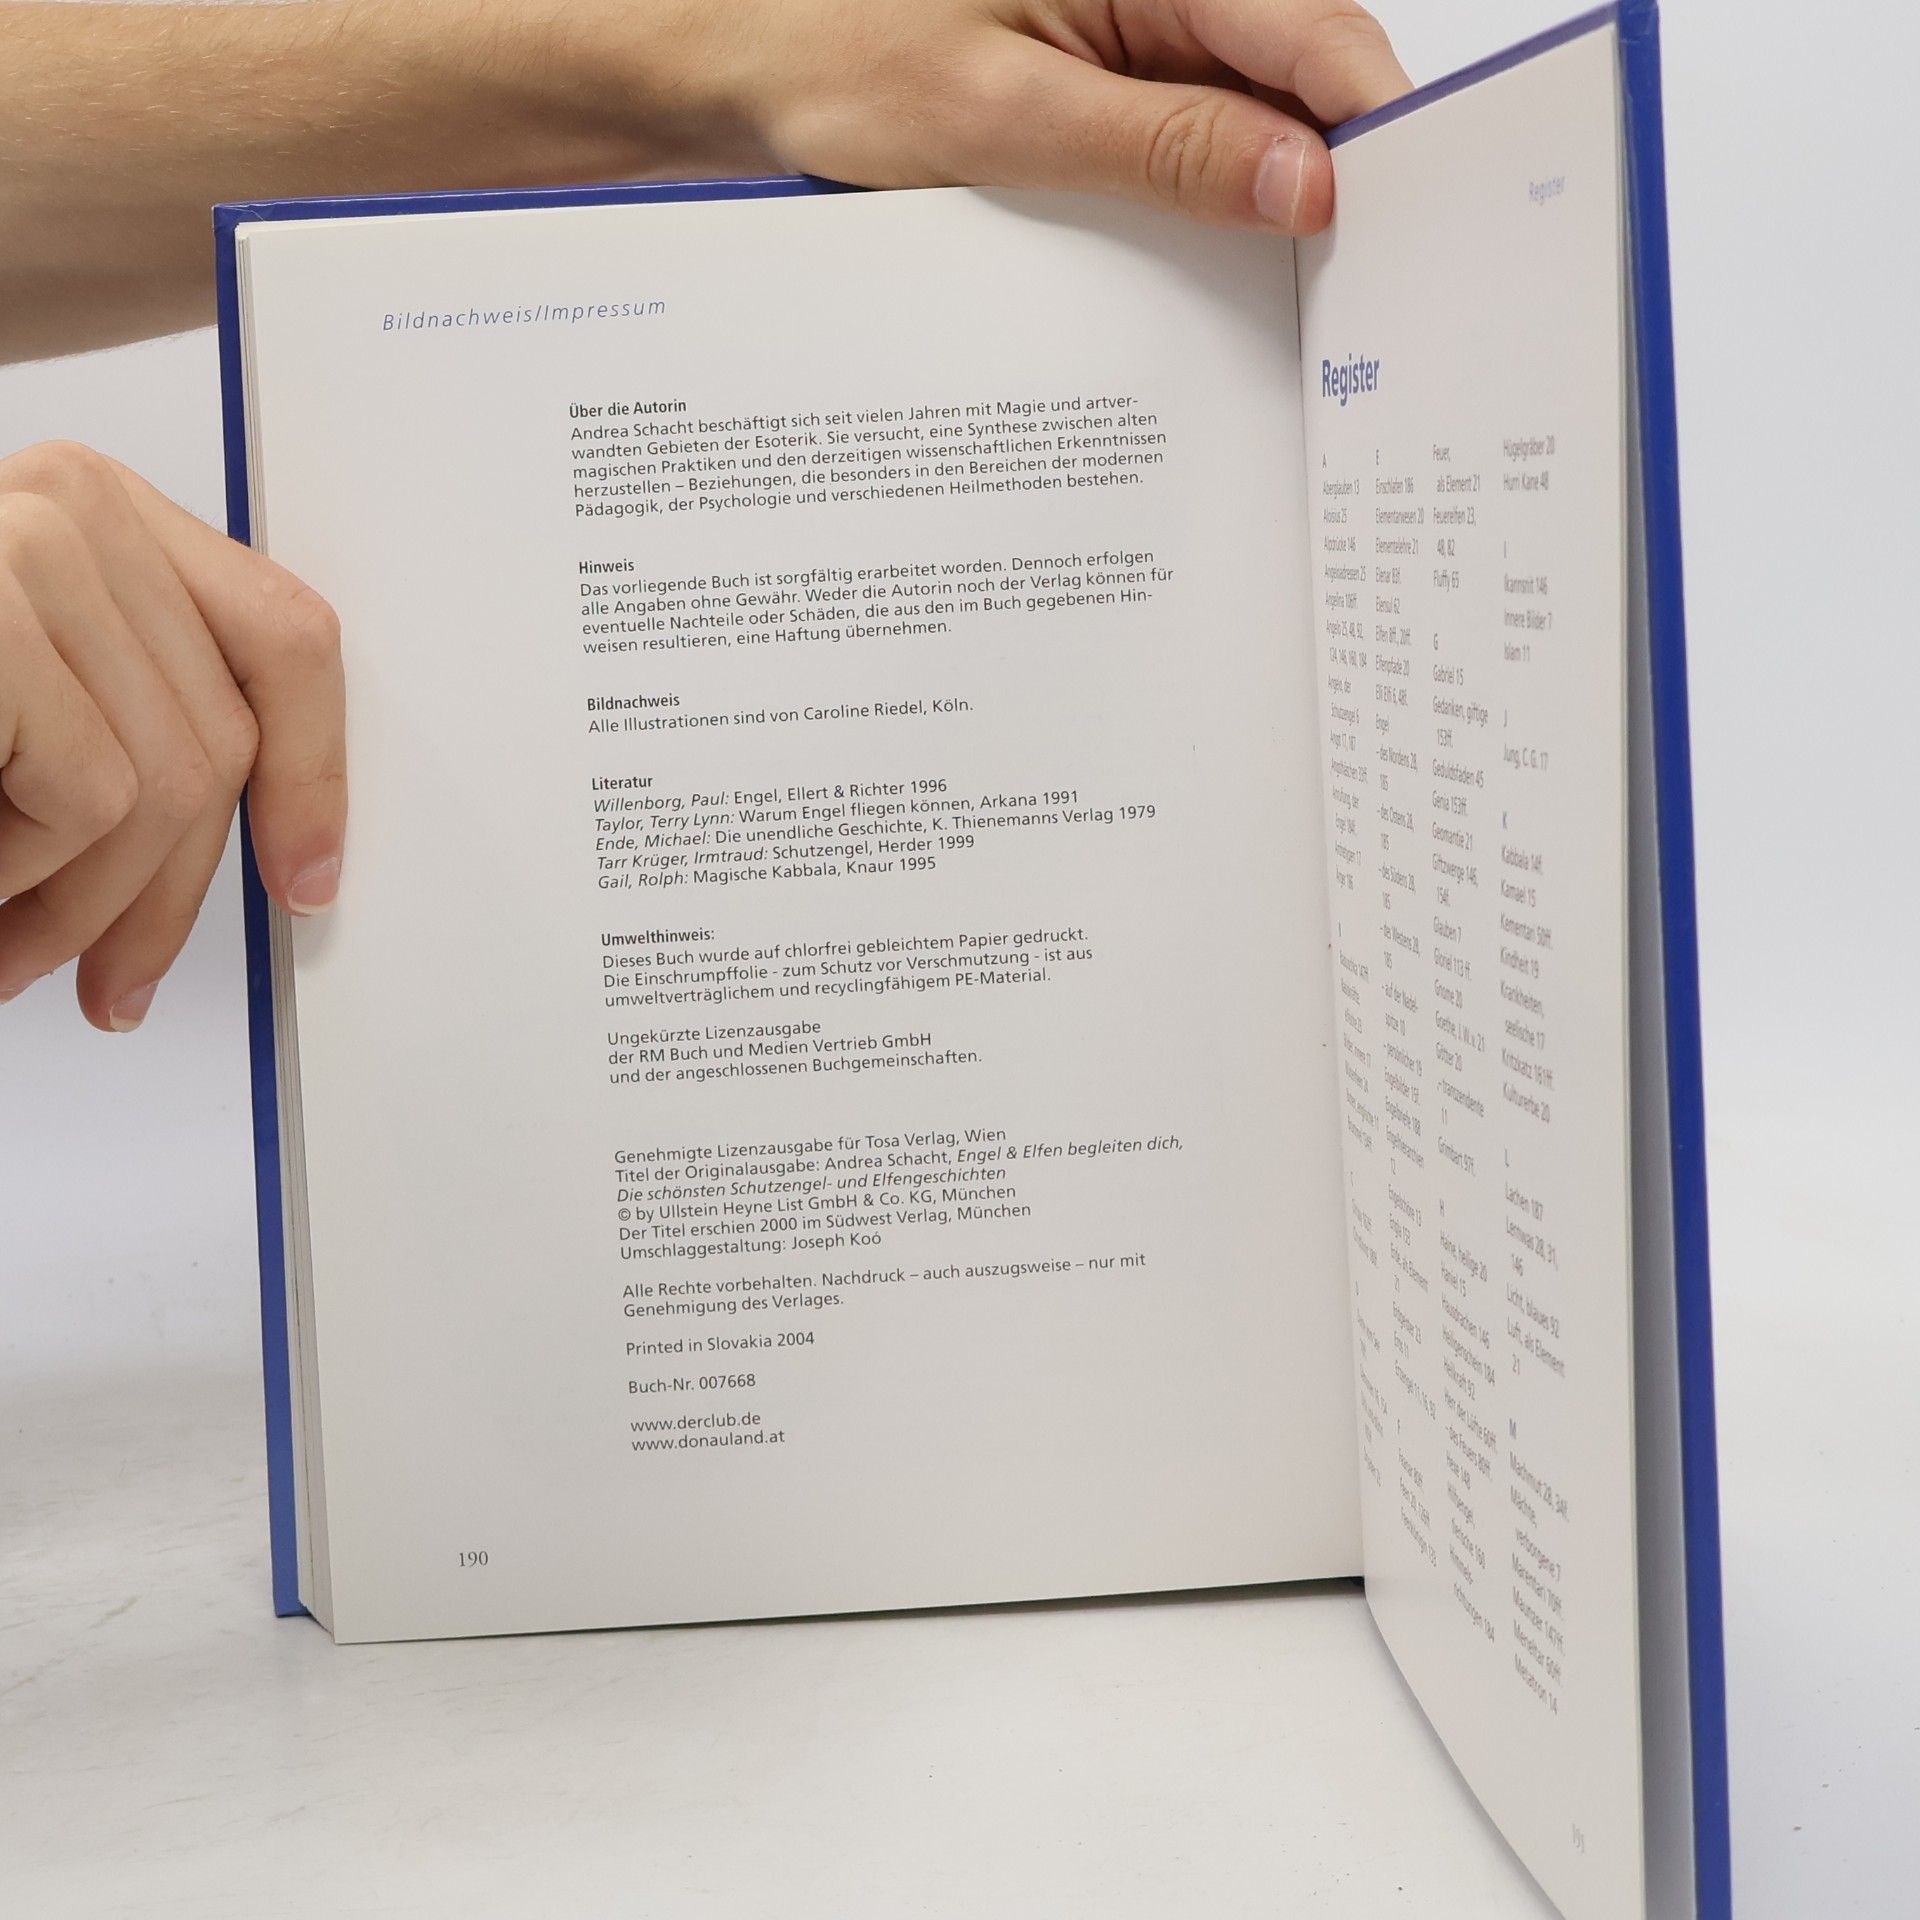 Bildnachweis/Impressum
Über die Autorin
Andrea Schacht beschäftigt sich seit vielen Jahren mit Magie und artver-
wandten Gebieten der Esoterik. Sie versucht, eine Synthese zwischen alten
magischen Praktiken und den derzeitigen wissenschaftlichen Erkenntnissen
herzustellen – Beziehungen, die besonders in den Bereichen der modernen
Pädagogik, der Psychologie und verschiedenen Heilmethoden bestehen.
Hinweis
Das vorliegende Buch ist sorgfältig erarbeitet worden. Dennoch erfolgen
alle Angaben ohne Gewähr. Weder die Autorin noch der Verlag können für
eventuelle Nachteile oder Schäden, die aus den im Buch gegebenen Hin-
weisen resultieren, eine Haftung übernehmen.
Bildnachweis
Alle Illustrationen sind von Caroline Riedel, Köln.
Literatur
Willenborg, Paul: Engel, Ellert & Richter 1996
Taylor, Terry Lynn: Warum Engel fliegen können, Arkana 1991
Ende, Michael: Die unendliche Geschichte, K. Thienemanns Verlag 1979
Tarr Krüger, Irmtraud: Schutzengel, Herder 1999
Gail, Rolph: Magische Kabbala, Knaur 1995
Umwelthinweis:
Dieses Buch wurde auf chlorfrei gebleichtem Papier gedruckt.
Die Einschrumpffolie - zum Schutz vor Verschmutzung - ist aus
umweltverträglichem und recyclingfähigem PE-Material.
Ungekürzte Lizenzausgabe
der RM Buch und Medien Vertrieb GmbH
und der angeschlossenen Buchgemeinschaften.
Genehmigte Lizenzausgabe für Tosa Verlag, Wien
Titel der Originalausgabe: Andrea Schacht, Engel & Elfen begleiten dich,
Die schönsten Schutzengel- und Elfengeschichten
© by Ullstein Heyne List GmbH & Co. KG, München
Der Titel erschien 2000 im Südwest Verlag, München
Umschlaggestaltung: Joseph Koó
Alle Rechte vorbehalten. Nachdruck – auch auszugsweise – nur mit
Genehmigung des Verlages.
Printed in Slovakia 2004
Buch-Nr. 007668
www.derclub.de
www.donauland.at
190
Register
Register
A
Aberglauben 13
Aloisius 25
Alpdrücke 146
E
Einschlafen 186
Elementarwesen 20
Elementelehre 21
Elensul 62
Elfenpfade 20
Engel
Feuer,
als Element 21
Feuerelfen 23,
48, 82
Fluffy 65
G
Gabriel 15
Gedanken, giftige
153ff.
Geduldsfaden 45
Genia 153ff.
Geomantie 21
Giftzwerge 146,
154f.
Glauben 7
Gloriel 113 ff.
Gnome 20
Goethe, J. W. v. 21
Götter 20
– transzendente
11
Grimbart 97f.
H
Haine, heilige 20
Haniel 15
Hausdrachen 146
Heiligenschein 184
Heilkraft 92
Herr der Lüfte 60ff.
– des Feuers 80ff.
Hexe 148
Himmels-
richtungen 184
Hügelgräber 20
Hurri Kane 48
I
Ikannsnit 146
Innere Bilder 7
Islam 11
J
Jung, C. G. 17
K
Kabbala 14f.
Kamael 15
Kementari 50ff.
Kindheit 19
Krankheiten,
seelische 17
Kritzkatz 161ff.
Kulturerbe 20
L
Lachen 187
Lernwas 28, 31,
146
Licht, blaues 92
Luft, als Element
21
M
Machmut 28, 34ff.
Mächte,
verborgene 7
Marentari 70ff.
Maunzer 147ff.
Meneltar 60ff.
Metatron 14
191